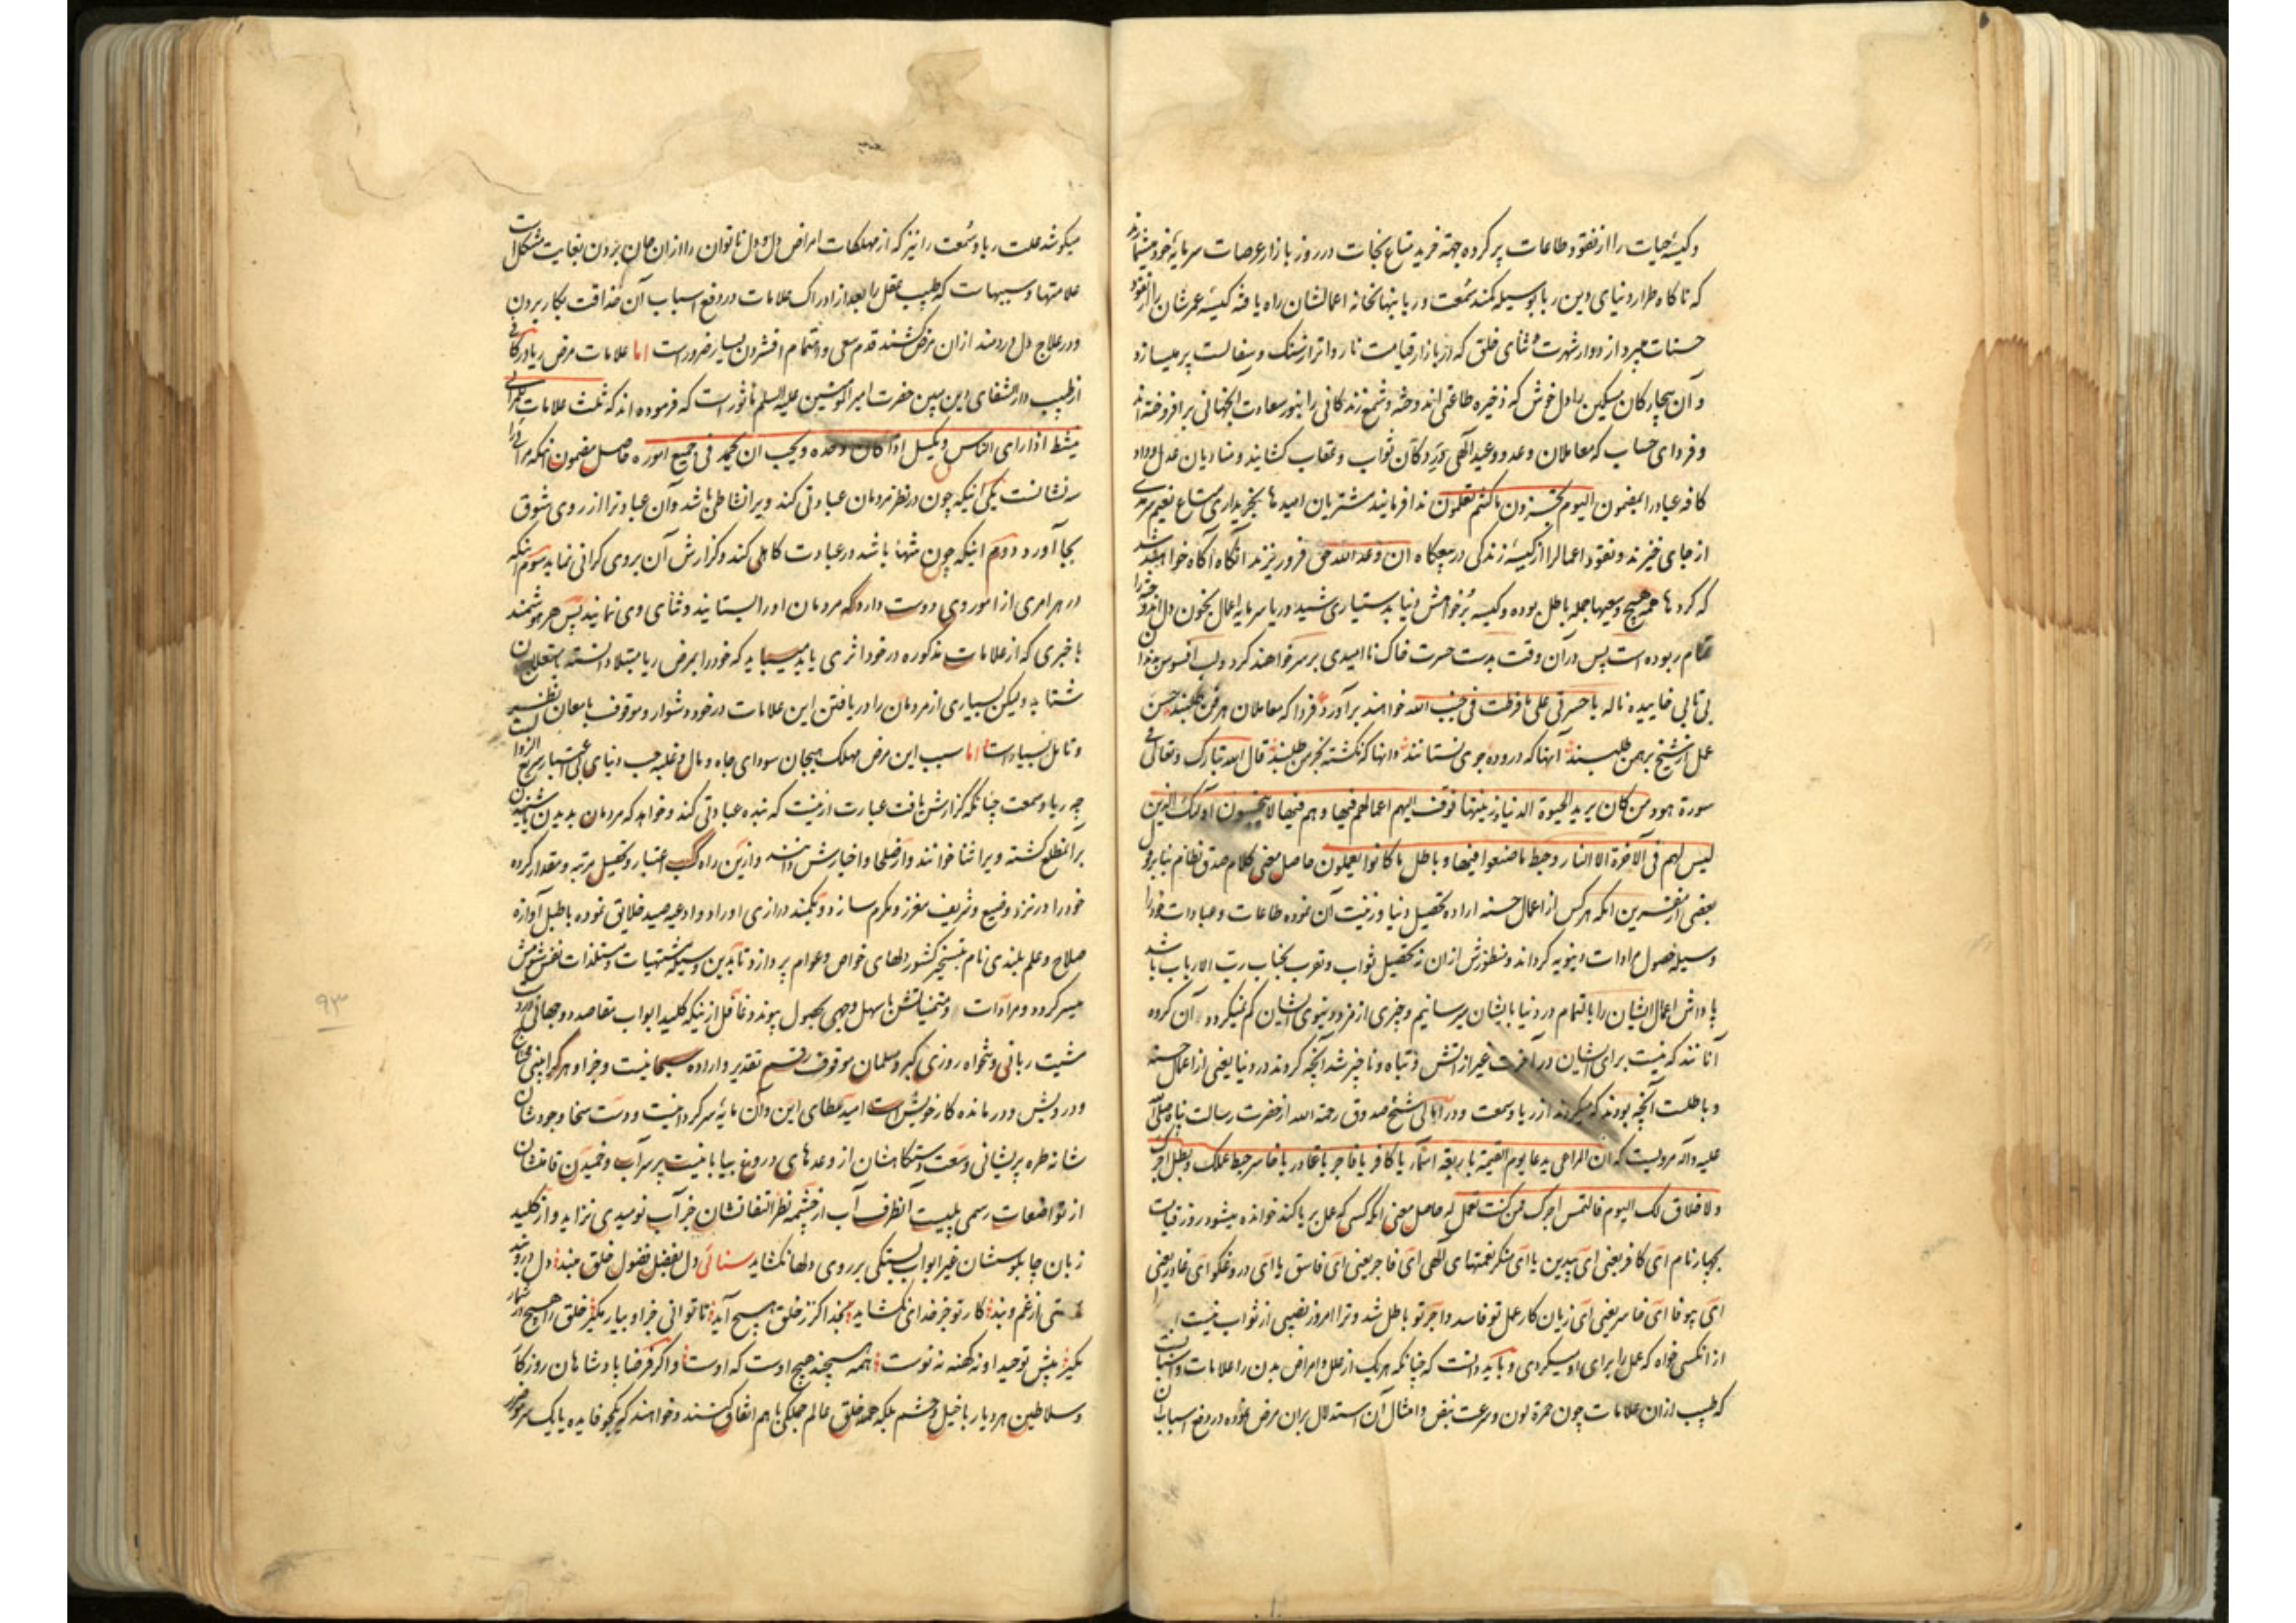 و کیسهٔ حیات را از نقود طاعات پر کرده جهة خرید متاع نجات در روز بازار عرصات سرمایهٔ خود میشمارند
که ناکاه طرار دنیای دین ربا بوسیله کمند سمعت و ریا بنهانخانه اعمالشان راه یافته کیسهٔ عمرشان را از نقود
حسنات میبرد و از دوار شهرت و ثنای خلق که در بازار قیامت نارواتر از سنک و سفالست پر میسازد
و آن بیچارکان مسکین را دل خوش که ذخیره طاعتی اندوخته و شمع زندکانی را بنور سعادت آنجهانی برافروخته‌اند
و فردای حساب که معاملان وعد و وعید الهی در دکان ثواب و عقاب کشایند و منادیان عدل و داد
کافه عباد را بمضمون الیوم تجزون ما کنتم تعملون ندا فرمایند مشتریان امیدها بخریداری متاع نعیم سرمدی
از جای خیزند و نقود اعمال را از کیسهٔ زندکی در پیچکاه ان وعد الله حق فرو ریزند آنکاه آکاه خواهند شد
که کردها همه هیچ و سعیها جمله باطل بوده و کیسه بر خواهش دنیا بدستیاری شید و ریا سرمایه اعمال بخون دل اندوخته را
تمام ربوده است پس در آن وقت بدست حسرت خاک ناامیدی بر سر خواهند کرد و لب افسوس بدندان
بی تابی خاییده ناله یا حسرتی علی ما فرطت فی جنب الله خواهند برآورد فردا که معاملان هر فن طلبند حسن
عمل از شیخ و برهمن طلبند آنها که دروده جوی نستانند و آنها که نکشته خرمن طلبند قال الله تبارک و تعالی فی
سورة هود من کان یرید الحیوة الدنیا و زینتها نوف الیهم اعمالهم فیها و هم فیها لا یبخسون اولئک الذین
لیس لهم فی الآخرة الا النار و حبط ما صنعوا فیها و باطل ما کانوا یعملون حاصل معنی کلام صدق نظام بنا بر قول
بعضی از مفسرین آنکه هر کس از اعمال حسنه اراده تحصیل دنیا و زینت آن نموده طاعات و عبادات خود را
وسیله حصول مرادات دنیویه کرداند و منظورش از ان نه تحصیل ثواب و تقرب بجناب رب الارباب باشد
پاداش اعمال ایشان را بالتمام در دنیا بایشان برسانیم و چیزی از مزد دنیوی ایشان کم نمیکردد آن کروه
آنانند که نیست برای ایشان در آخرت غیر از آتش و تباه و ناچیز شد آنچه کردند در دنیا یعنی از اعمال حسنه
و باطلست آنچه بودند که میکردند از ریا و سمعت و در امالی شیخ صدوق رحمة الله از حضرت رسالت پناه صلی الله
علیه و آله مرویست که ان المرائی یدعا یوم القیمة باربعة اسماء یا کافر یا فاجر یا غادر یا خاسر حبط عملک و بطل اجرک
و لا خلاق لک الیوم فالتمس اجرک ممن کنت تعمل له حاصل معنی آنکه کسی که عمل بریا کند خوانده میشود روز قیامت
بچهار نام ای کافر یعنی ای بیدین یا ای منکر نعمتهای الهی ای فاجر یعنی ای فاسق یا ای دروغکو ای غادر یعنی
ای بیوفا ای خاسر یعنی ای زیان کار عمل تو فاسد و اجر تو باطل شد و ترا امروز نصیبی از ثواب نیست
از انکس خواه که عمل را برای او میکردی و باید دانست که چنانکه هر یک از علل و امراض بدن را علامات و اسبابیست
که طبیب از ان علامات چون حمرة لون و سرعت نبض و امثال آن استدلال بران مرض نموده در دفع اسباب آن
میکوشد علت ریا و سمعت را نیز که از مهلکات امراض دل و دل ناتوان را از ان جان بردن بغایت مشکل است
علامتها و سببهاست که طبیب عقل را بعد از ادراک علامات در دفع اسباب آن حذاقت بکار بردن
و در علاج دل دردمند از ان مرض کشنده قدم سعی و اهتمام افشردن بسیار ضرور است اما علامات مرض ریا در کافی
از طبیب دار الشفای دین مبین حضرت امیر المؤمنین علیه السلم ماثور است که فرموده اند که ثلث علامات للمرائی
ینشط اذا رای الناس و یکسل اذا کان وحده و یحب ان یحمد فی جمیع اموره حاصل مضمون آنکه مرائی را
سه نشانست یکی آنیکه چون در نظر مردمان عبادتی کند ویرا نشاطی باشد و آن عبادترا از روی شوق
بجا آورد دوم اینکه چون تنها باشد در عبادت کاهلی کند و کزارش آن بروی کرانی نماید سوم اینکه
در هر امری از امور وی دوست دارد که مردمان او را بستایند و ثنای وی نمایند پس هر هوشمند
باخبری که از علامات مذکوره در خود اثری یابد میباید که خود را بمرض ریا مبتلا دانسته بعلاج آن
شتابد و لیکن بسیاری از مردمان را دریافتن این علامات در خود دشوار و موقوف بامعان نظر
و تامل بسیار است اما سبب این مرض مهلک هیجان سودای جاه و مال و غلبه حب دنیای بی اعتبار سریع الزوال است
چه ریا و سمعت چنانکه کزارش یافت عبارت ازینست که بنده عبادتی کند و خواهد که مردمان بدیدن یا شنیدن
بر آن مطلع کشته ویرا ثنا خوانند و از صلحا و اخیارش دانند و ازین راه کسب اعتبار و تحصیل مرتبه و مقدار کرده
خود را در نزد وضیع و شریف معزز و مکرم سازد و بکمند درازی اوراد و ادعیه صید خلایق نموده با طبل آوازه
صلاح و علم بلندی نام بتسخیر کشور دلهای خواص و عوام پردازد تا بدین وسیله مشتهیات و مستلذات نفس شومش
میسر کردد و مرادات و متمنیاتش باسهل وجهی بحصول پیوندد غافل ازینکه کلید ابواب مقاصد دو جهانی در دست
مشیت ربانی و تنخواه روزی کبر و مسلمان موقوف رقم تقدیر و اراده سبحانیست و جز او هر که را بینی محتاج
و درویش و درمانده کار خویش است امید عطای این و آن مایهٔ سرکردانیست و دست سخا و جودشان
شانه طره پریشانی وسعت دستکاهشان از وعدهای دروغ بیابانیست پر سراب و خمیدن قامتشان
از تواضعات رسمی پلیست آنطرف آب از چشمه نظر التفاتشان جز آب نومیدی نزاید و از کلید
زبان چاپلوسشان غیر ابواب بستکی بر روی دلها نکشاید سنائی دل بفضل فضول خلق مبند دل درو بند
رستی از غم و بند کار تو جز خدای نکشاید بخدا کر ز خلق هیچ آید تا توانی جز او بیار مکیر خلق را هیچ در شمار
مکیر پیش توحید او نه کهنه نه نوست همه هیچند هیچ اوست که اوست و اکر فرضا پادشاهان روزکار
و سلاطین هر دیار با خیل و حشم بلکه همه خلق عالم جملکی با هم اتفاق کنند و خواهند که یکجو فایده یا یک سر مو ضرر
۹۳